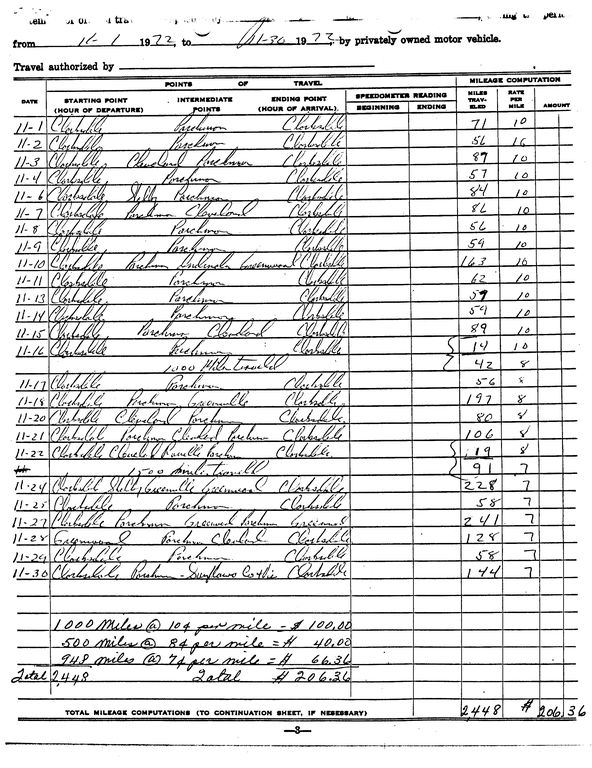 from 11-1 1972, to 11-30 1972, by privately owned motor vehicle.
Travel authorized by
POINTS OF TRAVEL MILEAGE COMPUTATION
DATE STARTING POINT (HOUR OF DEPARTURE) INTERMEDIATE POINTS ENDING POINT (HOUR OF ARRIVAL) SPEEDOMETER READING BEGINNING ENDING MILES TRAV- ELED RATE PER MILE AMOUNT
11-1 Clarksdale Parchman Clarksdale 71 10
11-2 Clarksdale Parchman Clarksdale 56 10
11-3 Clarksdale Cleveland Parchman Clarksdale 89 10
11-4 Clarksdale Parchman Clarksdale 57 10
11-6 Clarksdale Shelby Parchman Clarksdale 84 10
11-7 Clarksdale Parchman Cleveland Clarksdale 86 10
11-8 Clarksdale Parchman Clarksdale 56 10
11-9 Clarksdale Parchman Clarksdale 59 10
11-10 Clarksdale Parchman Greenwood Clarksdale 163 10
11-11 Clarksdale Parchman Clarksdale 62 10
11-13 Clarksdale Parchman Clarksdale 59 10
11-14 Clarksdale Parchman Clarksdale 59 10
11-15 Clarksdale Parchman Cleveland Clarksdale 89 10
11-16 Clarksdale Parchman Clarksdale 14 10
1000 Miles traveled 42 8
11-17 Clarksdale Parchman Clarksdale 56 8
11-18 Clarksdale Parchman Greenville Clarksdale 197 8
11-20 Clarksdale Cleveland Parchman Clarksdale 80 8
11-21 Clarksdale Parchman Cleveland Parchman Clarksdale 106 8
11-22 Clarksdale Cleveland Parchman Clarksdale 19 8
1500 miles travelled 91 7
11-24 Clarksdale Shelby Greenville Greenwood Clarksdale 228 7
11-25 Clarksdale Parchman Clarksdale 58 7
11-27 Clarksdale Parchman Greenwood Parchman Greenwood 241 7
11-28 Greenwood Parchman Cleveland Clarksdale 128 7
11-29 Clarksdale Parchman Clarksdale 58 7
11-30 Clarksdale Parchman - Sunflower Clarksdale 144 7
1000 Miles @ 10¢ per mile = $ 100.00
500 miles @ 8¢ per mile = $ 40.00
948 miles @ 7¢ per mile = $ 66.36
Total 2,448 Total $ 206.36
TOTAL MILEAGE COMPUTATIONS (TO CONTINUATION SHEET, IF NESESSARY) 2,448 $ 206.36
—3—